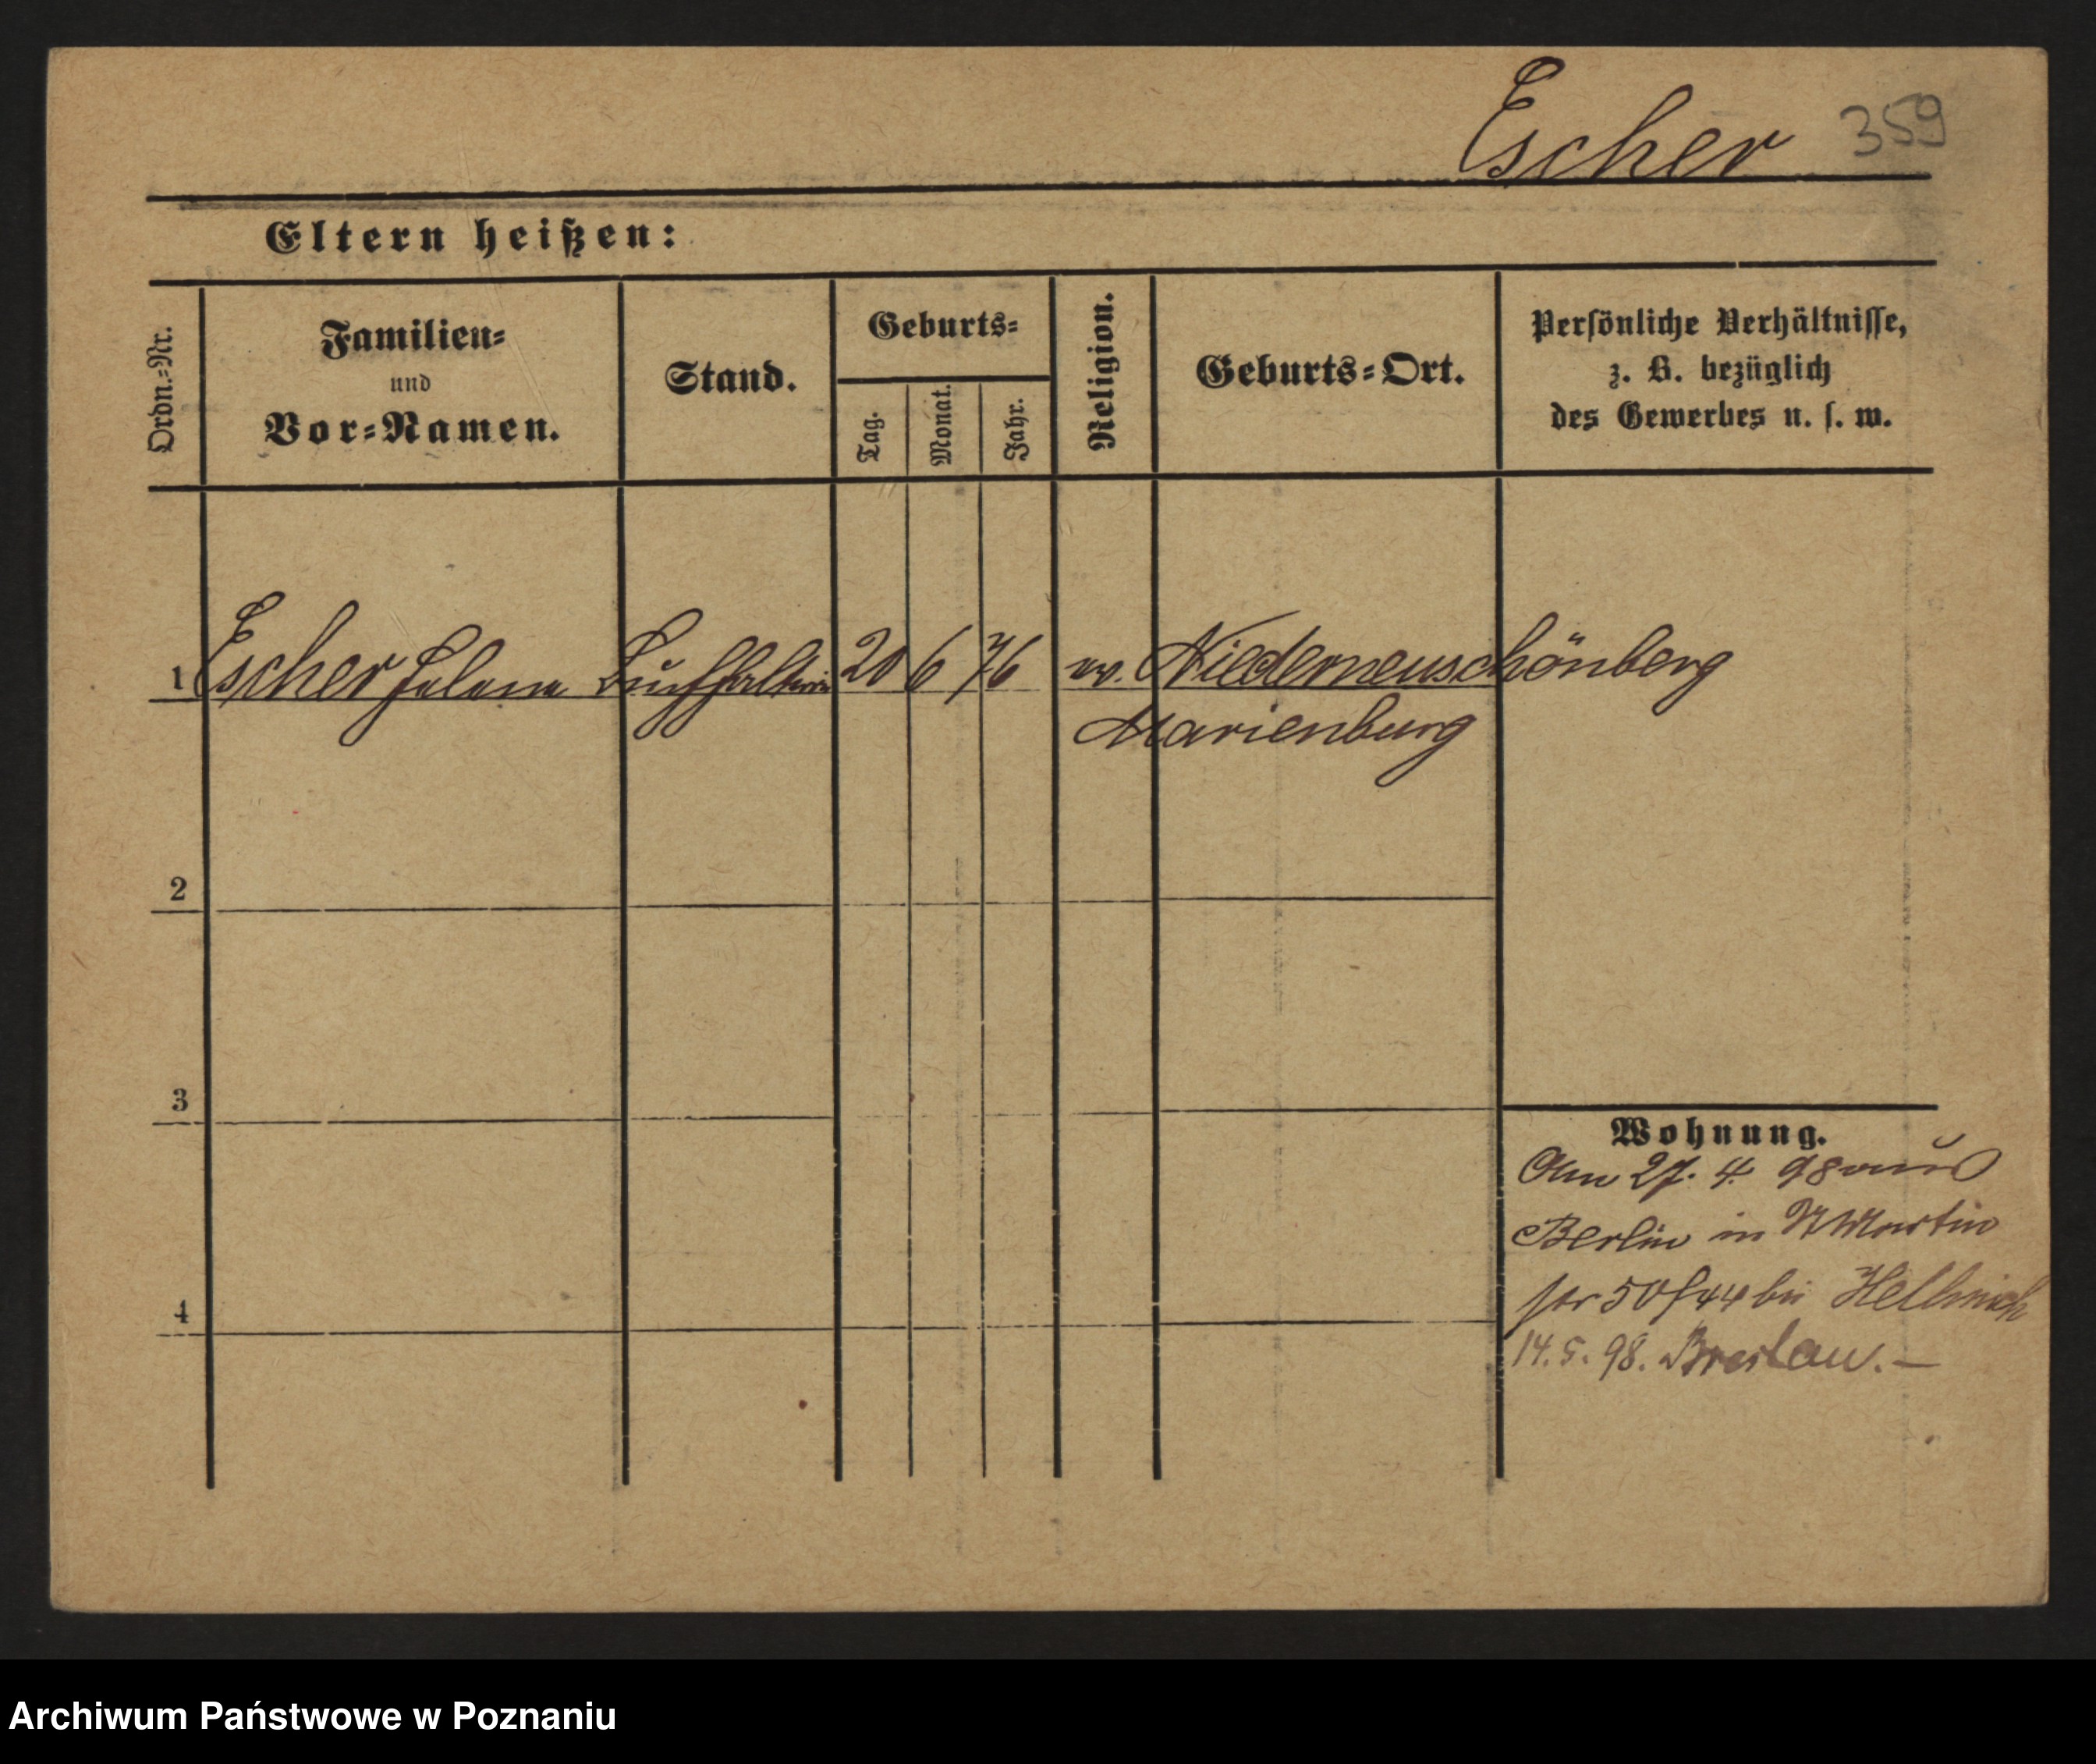 Escher 359
Eltern heißen:
Ordn.-Nr.
Familien-
und
Vor-Namen.
Stand.
Geburts-
Tag.
Monat.
Jahr.
Religion.
Geburts-Ort.
Persönliche Verhältnisse,
z. B. bezüglich
des Gewerbes u. s. w.
1 Escher Helene Buchhalterin 20 6 76 ev. Niederneuschönberg
Marienburg
2
3
Wohnung.
Am 27. 4. 98 aus
Berlin in St Martin
50 44 bei
4
14. 5. 98. Breslau. –
Archiwum Państwowe w Poznaniu